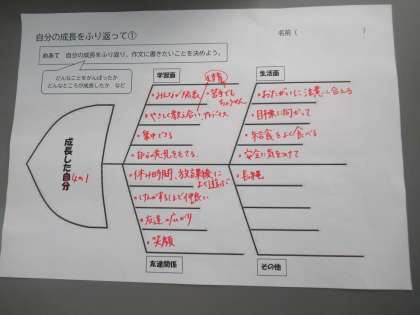 自分の成長をふり返って①
名前(　　　　　)
めあて　自分の成長をふり返り、作文に書きたいことを決めよう。
どんなことをがんばったか
どんなところが成長したか　など
学習面
生活面
・みんなが
・苦手でも
ちょうせん
・やさしく教え合い
アドバイス
・集中できる
・自分の意見をもてる
・おたがいに注意し合う
・目標に向かって
・給食をよく食べる
・安全に気をつけて
成長した自分
4の1
・休けい時間、放課後に
よく遊ぶ
・けんかするほど仲良い
・友達
・笑顔
・長縄
友達関係
その他